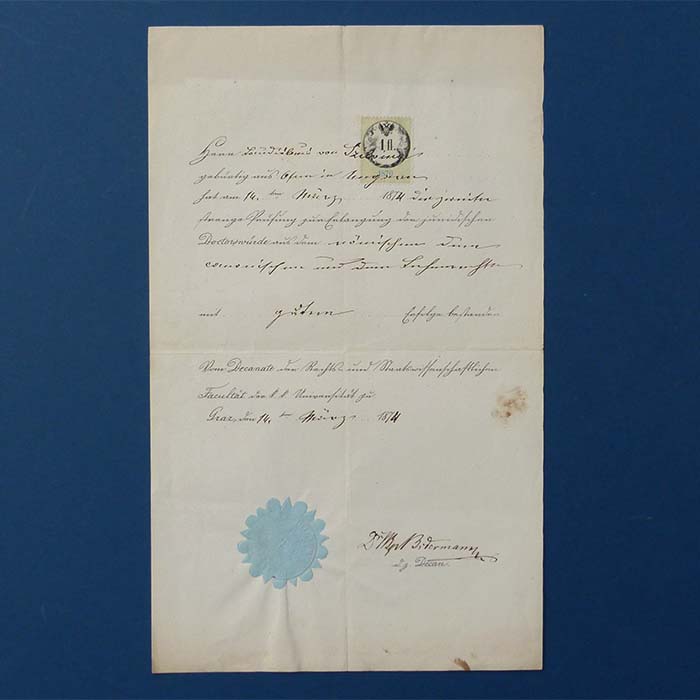 1 fl.
Herrn von
gebürtig aus Ofen in Ungarn
hat am 14. ten März 1874 die zweite
strenge Prüfung zur Erlangung der juridischen
Doctorswürde aus dem römischen dem
canonischen und dem Lehenrechte
mit gutem Erfolge bestanden
Vom Decanate der Rechts- und Staatswissenschaftlichen
Facultät der k. k. Universität zu
Graz, den 14. ten März 1874
Dr Bidermann
d. z. Decan.